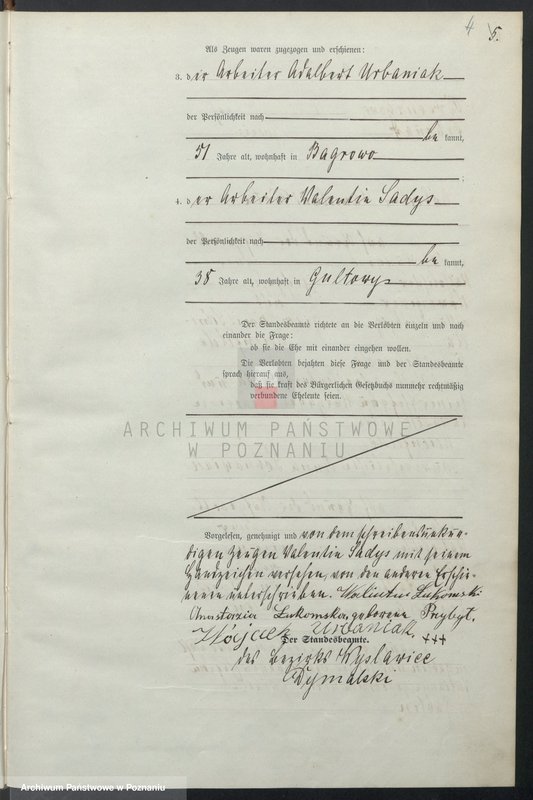 4 5.
Als Zeugen waren zugezogen und erschienen:
3. der Arbeiter Adalbert Urbaniak
der Persönlichkeit nach
bekannt,
51 Jahre alt, wohnhaft in Bagrowo
;
4. der Arbeiter Valentin Sadys
der Persönlichkeit nach
bekannt,
38 Jahre alt, wohnhaft in Gultowy
Der Standesbeamte richtete an die Verlobten einzeln und nach
einander die Frage:
ob sie die Ehe mit einander eingehen wollen.
Die Verlobten bejahten diese Frage und der Standesbeamte
sprach hierauf aus,
daß sie kraft des Bürgerlichen Gesetzbuchs nunmehr rechtmäßig
verbundene Eheleute seien.
ARCHIWUM PAŃSTWOWE
W POZNANIU
Vorgelesen, genehmigt und von dem schreibensunkun-
digen Zeugen Valentin Sadys mit seinem
Handzeichen versehen, von den anderen Erschie-
nenen unterschrieben. Walenty Łukomski
Anastazia Łukomska, geborene Przybył.
Wójciech Urbaniak, +++
Der Standesbeamte.
des Bezirks Wyslawice
Dymalski
Archiwum Państwowe w Poznaniu